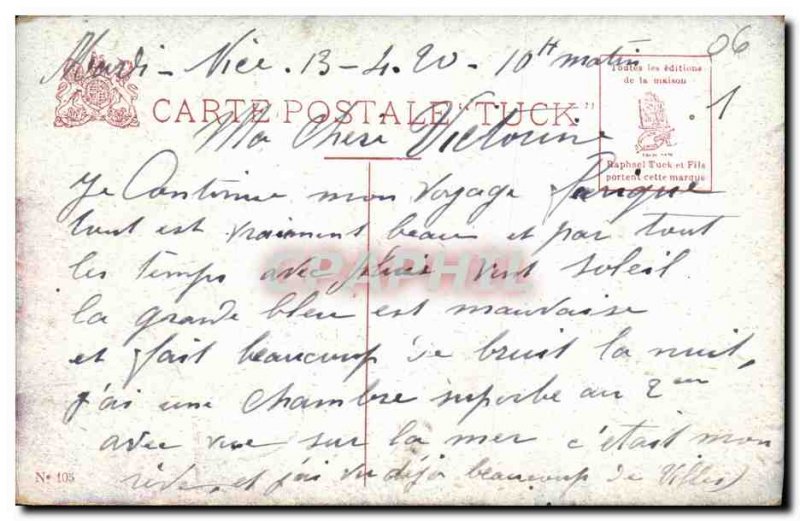 Mardi - Nice. 13-4.20 - 10H matin
06
Toutes les éditions
de la maison
CARTE POSTALE "TUCK"
1
Raphael Tuck et Fils
portent cette marque
Ma Chère Victorine
Je Continue mon voyage
tout est vraiment beau et par tout
les temps avec pluie vent soleil
la grande bleu est mauvaise
et fait beaucoup de bruit la nuit,
j'ai une chambre superbe au 2em
avec vue sur la mer c'était mon
rêve, et j'ai vu déjà beaucoup de Villes)
CPAPHIL
No 105